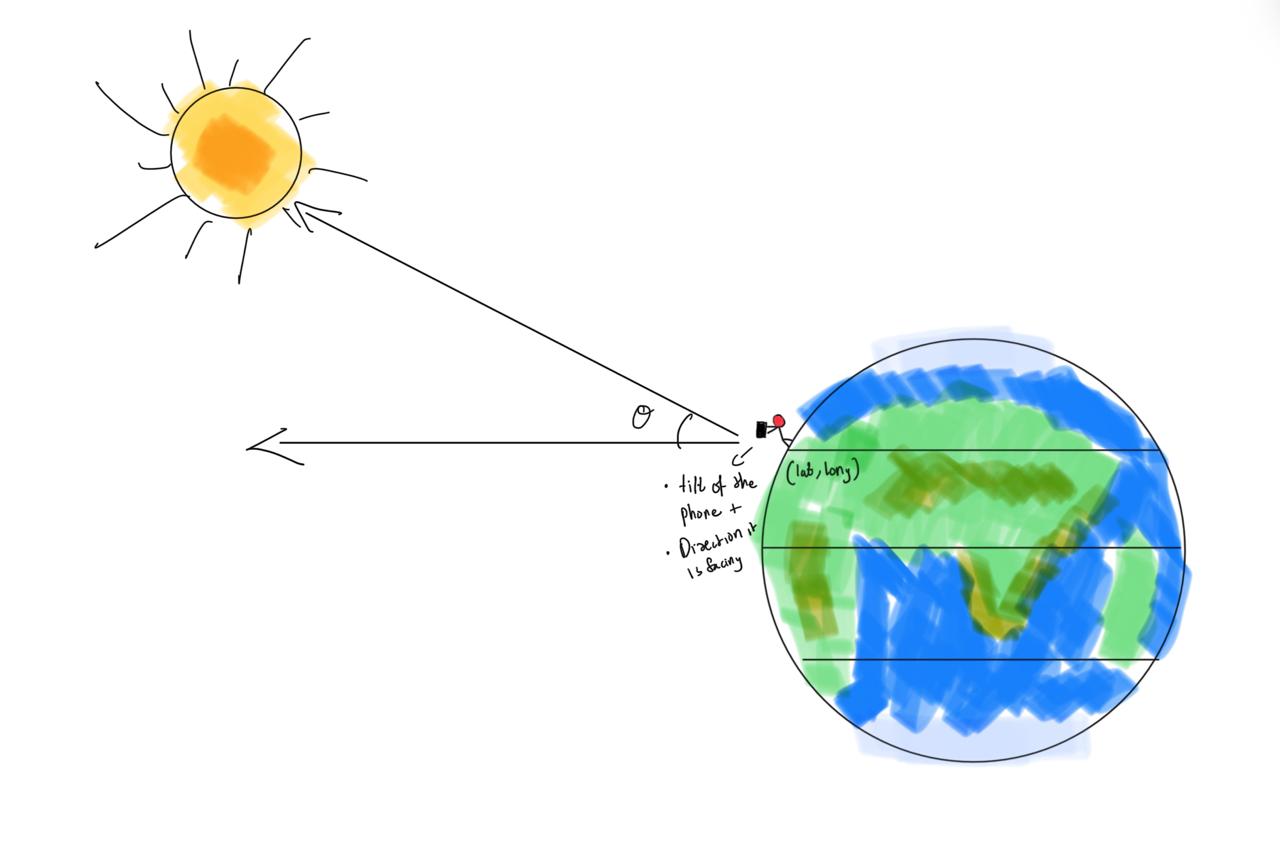 θ
(lat, long)
• tilt of the
phone +
• Direction it
is facing